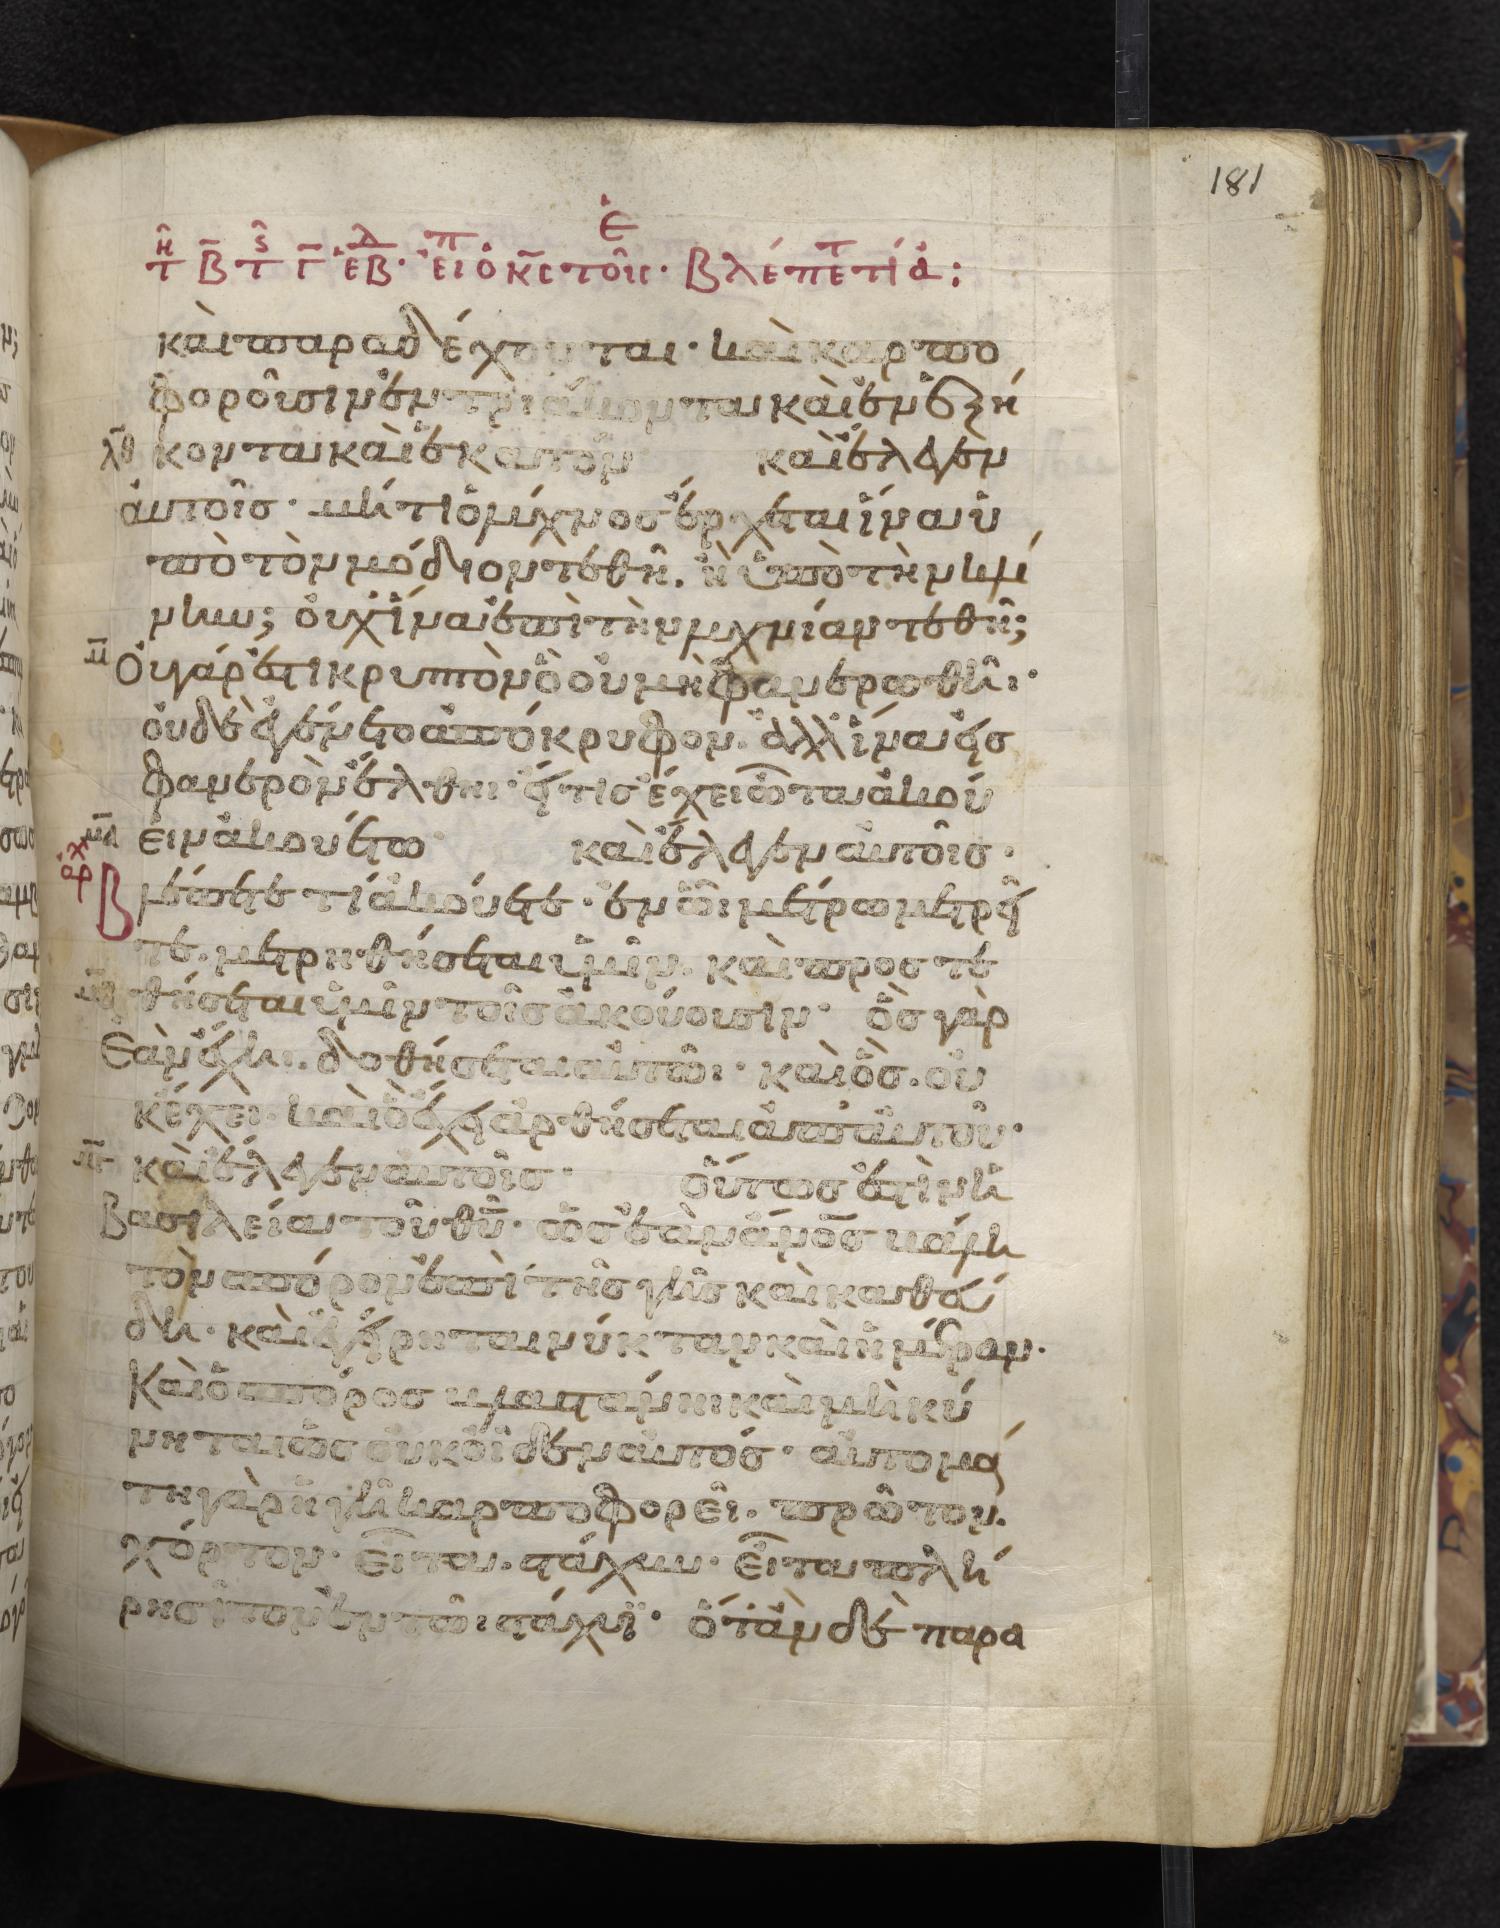 181
τῇ β̄ τ ς̑ γ̄ ἑβδ. εἶπ ὁ κ̅ς τοῖς. βλέπετ τί ἀ:
καὶ παραδέχονται· καὶ καρπο
φοροῦσιν ἐν τριάκοντα καὶ ἐν ἑξή
λθ κοντα καὶ ἑκατόν καὶ ἔλεγεν
αὐτοῖς· μήτι ὁ λύχνος ἔρχεται ἵνα ὑ
πὸ τὸν μόδιον τεθῆ. ἢ ὑπὸ τὴν κλί
νην; οὐχ ἵνα ἐπὶ τὴν λυχνίαν τεθῆ;
μ Οὐ γάρ ἐστι κρυπτὸν ὃ οὐ μὴ φανερωθῆι·
οὐδὲ ἐγένετο ἀπόκρυφον. ἀλλ' ἵνα εἰς
φανερὸν ἔλθηι· εἴ τις ἔχει ὦτα ἀκού
μα ειν ἀκουέτω καὶ ἔλεγεν αὐτοῖς·
ἀρχ Βλέπετε τί ἀκούετε· ἐν ὧι μέτρω μετρεῖ
τε. μετρηθήσεται ὑμῖν. καὶ προστε
μβ θήσεται ὑμῖν τοῖς ἀκούουσιν· ὃς γὰρ
ἐὰν ἔχηι. δοθήσεται αὐτῶι· καὶ ὃς. οὐ
κ ἔχει. καὶ ὃ ἔχει ἀρθήσεται ἀπ' αὐτοῦ·
μγ καὶ ἔλεγεν αὐτοῖς· οὕτως ἐστὶν ἡ
βασιλεία τοῦ θ̅υ̅· ὡς ἐὰν ἄν̅ο̅ς̅ βάλη
τὸν σπόρον ἐπὶ τῆς γῆς καὶ καθεύ
δη· καὶ ἐγείρηται νύκταν καὶ ἡμέραν·
Καὶ ὁ σπόρος βλαστάνη καὶ μὴ κύ
νηται ὡς οὐκ οἶδεν αὐτός· αὐτομά
τη γὰρ ἡ γῆ καρποφορεῖ. πρῶτον.
χόρτον· εἶτα. στάχυν· εἶτα πλή
ρη σῖτον ἐν τῶι στάχυϊ· ὅταν δὲ παρα